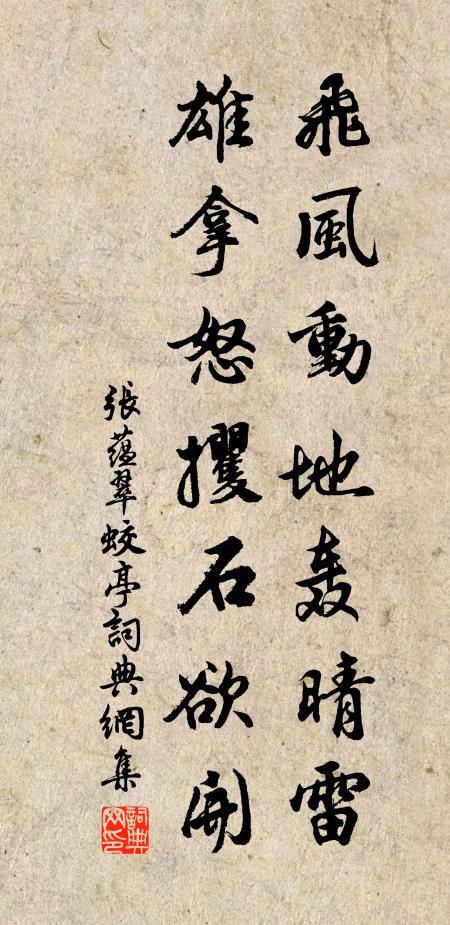 飛風動地轰晴雷
雄拿怒攫石欲開
張蘊翠蛟亭詞典網集
詞典網印